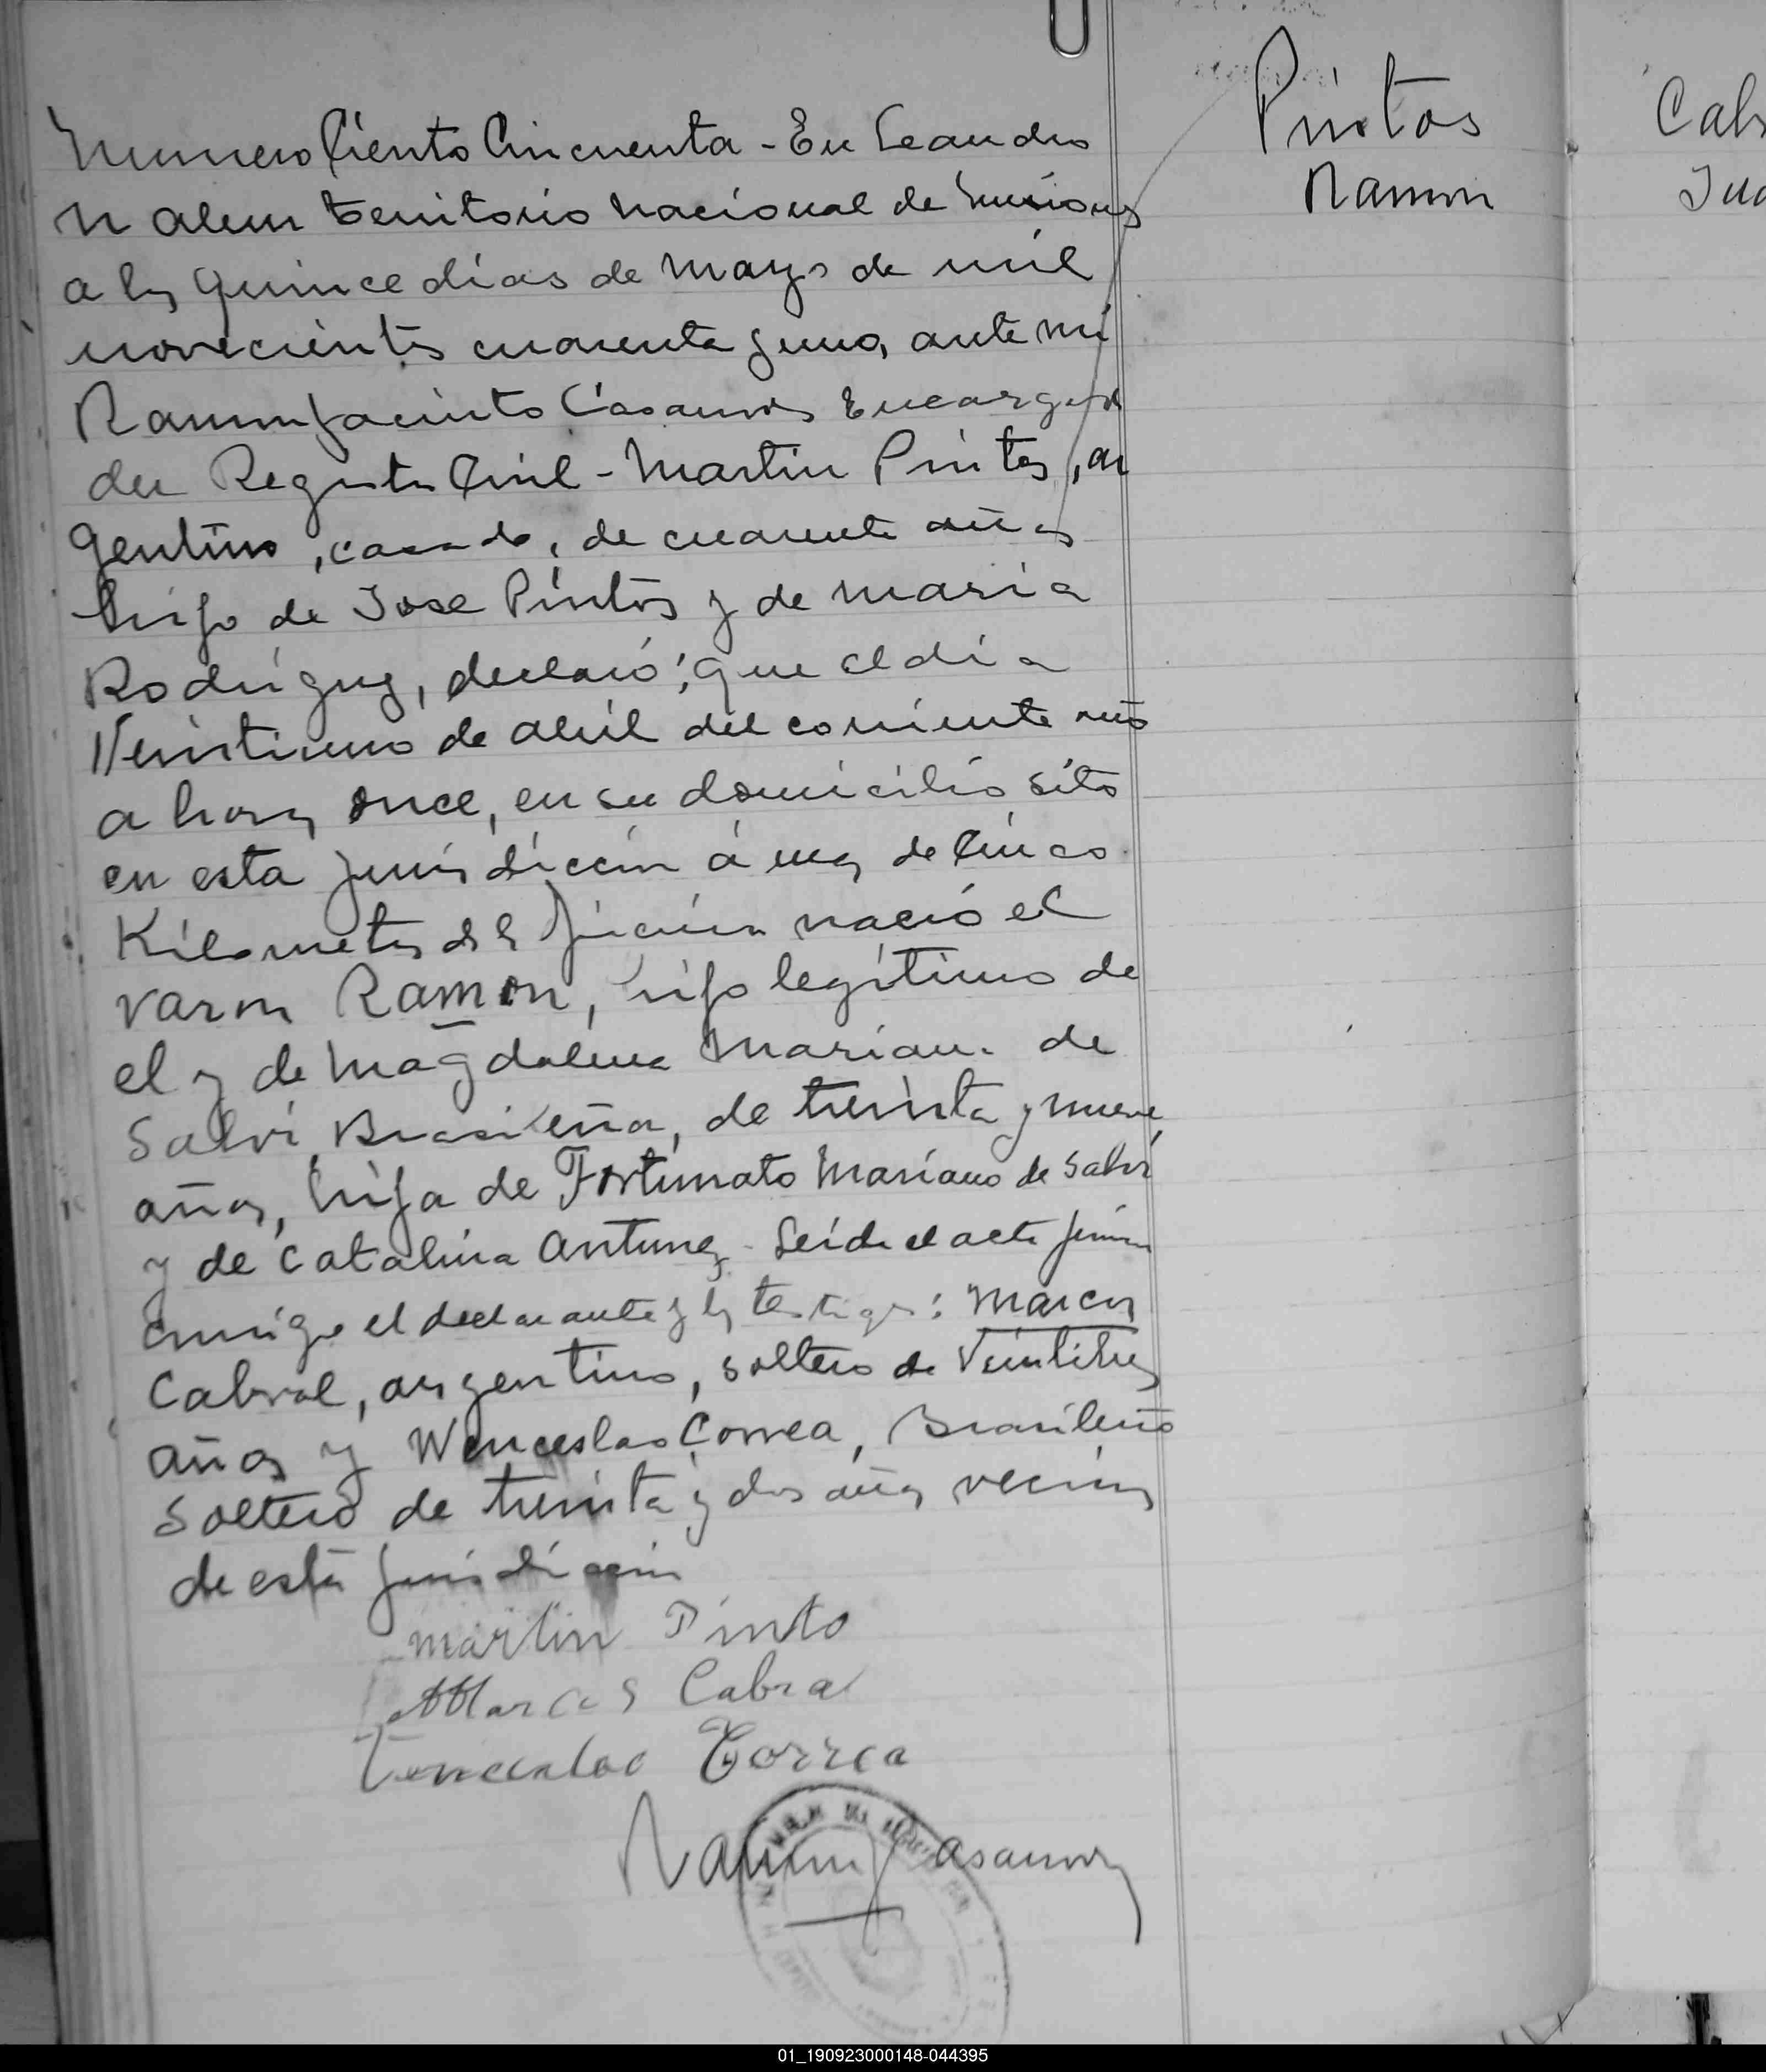 Pintos
Ramon
Cab
Jua
Numero Ciento Cincuenta - En Leandro
N alem territorio nacional de Misiones
a los quince dias de Mayo de mil
novecientos cuarenta y uno, ante mi
Ramon Jacinto Casanova Encargado
del Registro Civil - Martin Pintos, ar
gentino, casado, de cuarenta años
hijo de Jose Pintos y de Maria
Rodriguez, declaró; que el dia
Veintiuno de abril del corriente año
a horas once, en su domicilio sito
en esta jurisdiccion á mas de Cinco
Kilometros de la nació el
varon Ramon, hijo legitimo de
el y de Magdalena Mariano de
Salvi, Brasileña, de treinta y nueve
años, hija de Fortunato Mariano de Salvi
y de Catalina Antunez - Leida el acta firman
conmigo el declarante y los testigos: Marcos
Cabral, argentino, soltero de Veintitres
años y Wenceslao Correa, Brasileño
soltero de treinta y dos años vecinos
de esta jurisdiccion
martin Pinto
Marcos Cabral
Correa
Ramon J Casanova
01_190923000148-044395